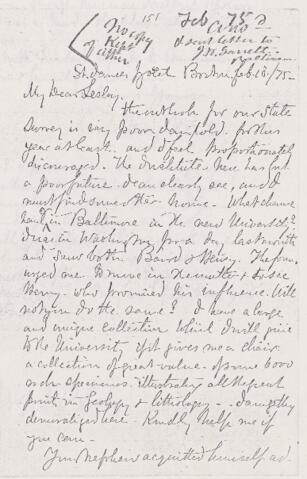 151
Feb 75
No copy
Kept
of either
Also
A sent letter to
J.W. Garrett
St. James Hotel Boston Feb. 18./75-
My Dear Lesley,
The outlook for our State
Survey is very poor I am told for this
year at least. and I feel proportionately
discouraged. The Institute here has but
a poor future, I can clearly see, and I
must find some other home. What chance
have I in Baltimore in the new University?
I was in Washington for a day last month
and saw both Baird & Henry. The former
urged me to move in the matter & to see
Henry. who promised his influence. Will
not you do the same? I have a large
and unique collection which I will give
to the University if it gives me a chair
a collection of great value. of some 6000
rock specimens. illustrating all the great
points in Geology & lithology -
demoralized here - Kindly help me if
you can -
Your Nephew acquitted himself ad-